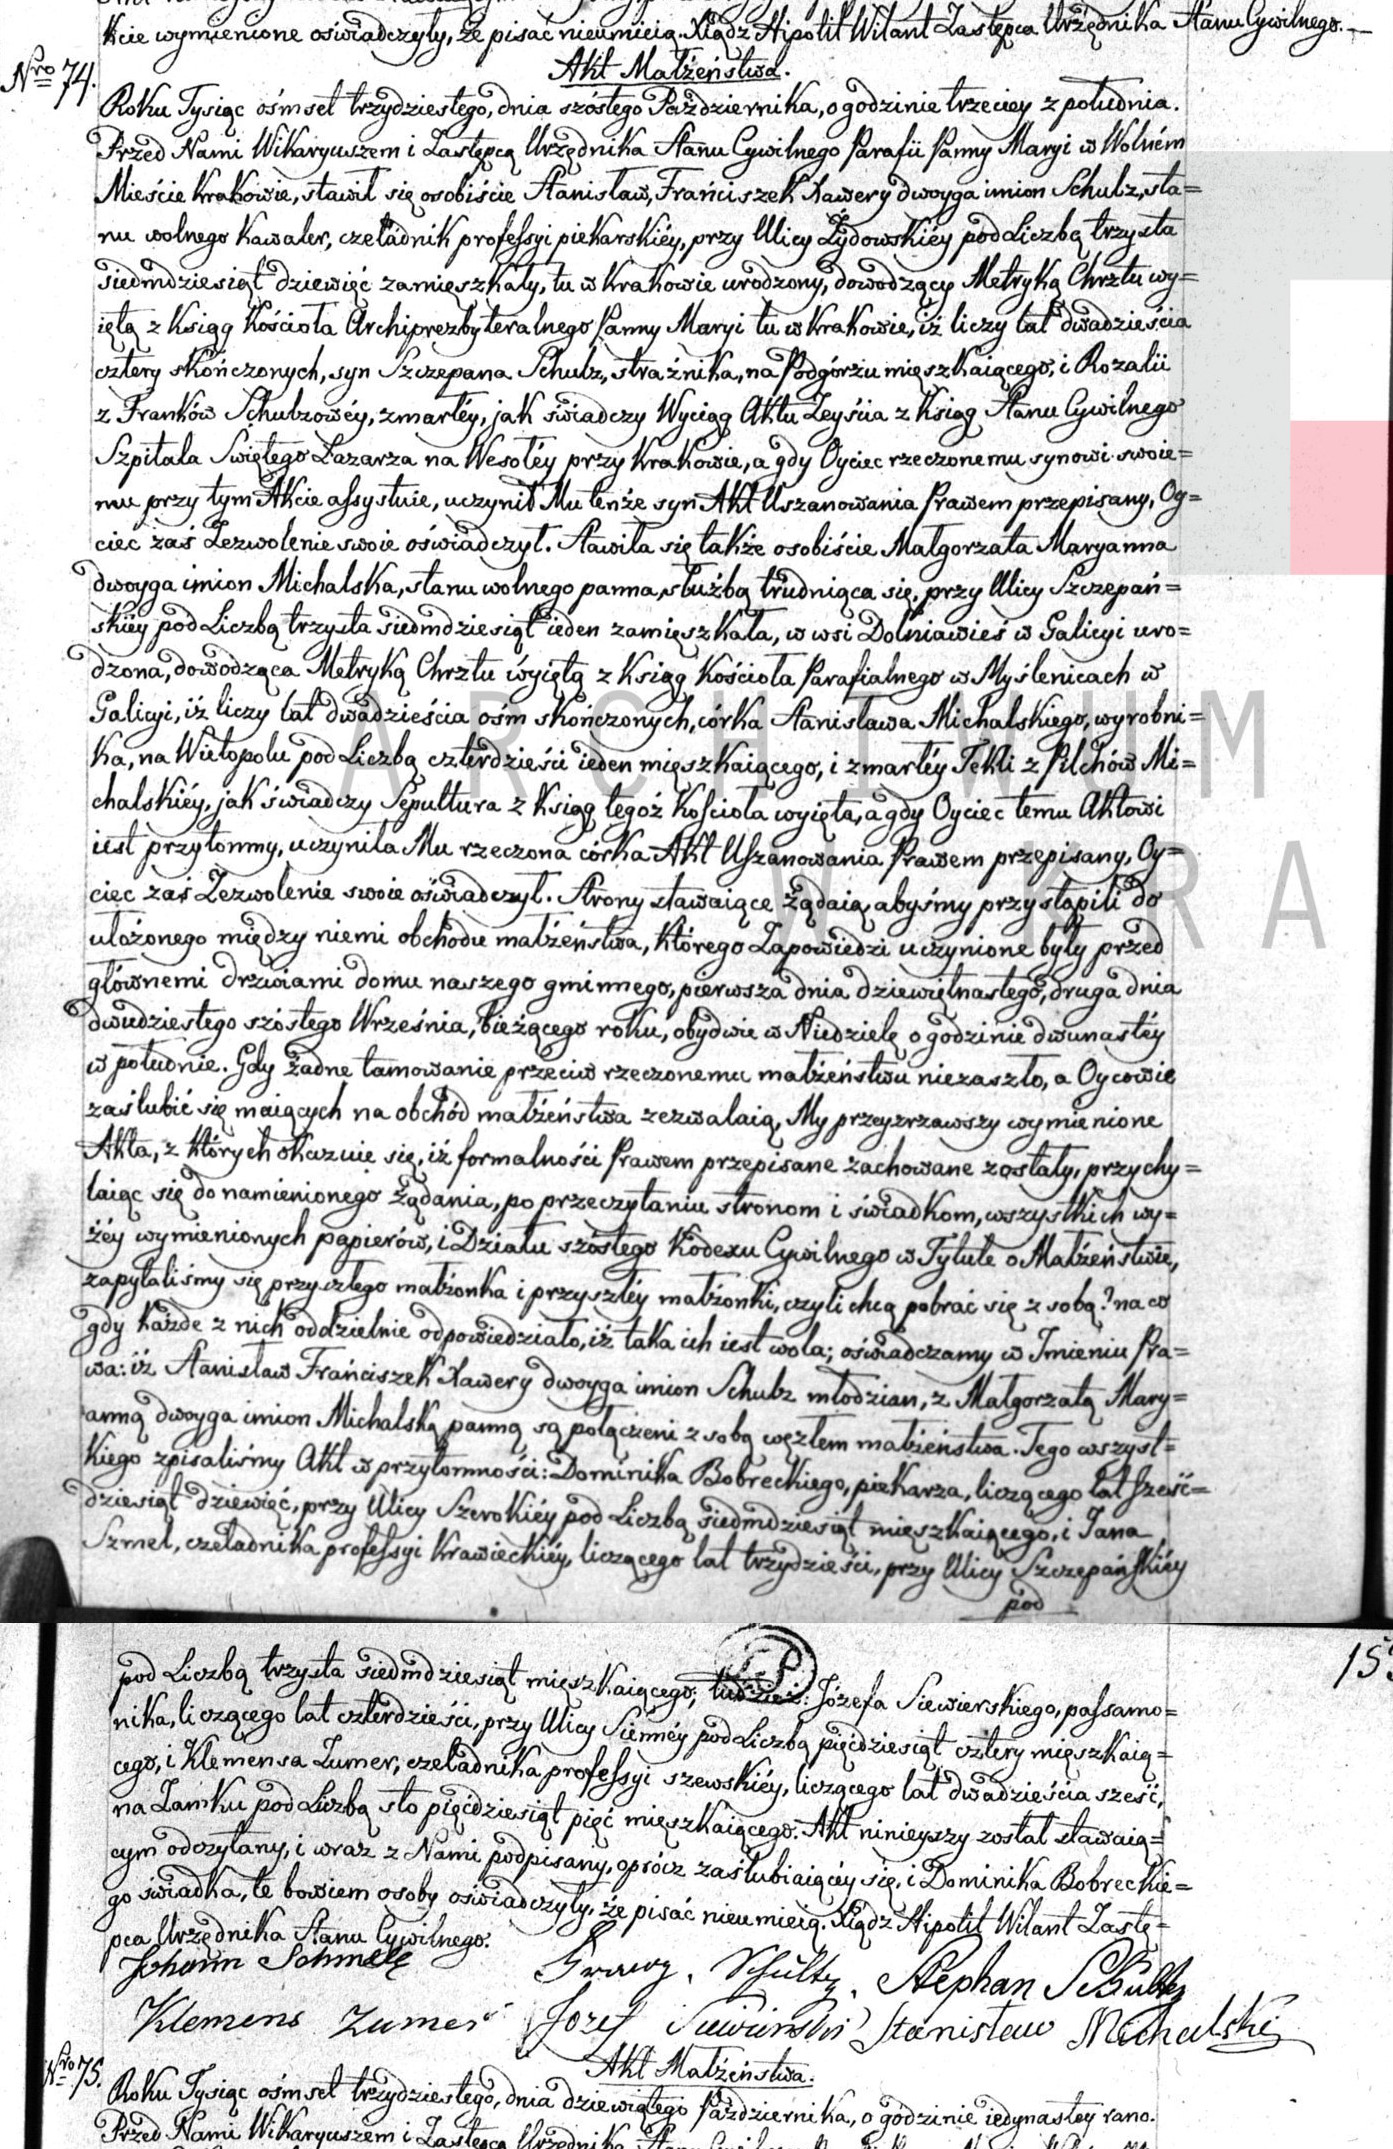 kcie wymienione oświadczyły, że pisać nieumieią. Xiądz Hipolit Wilant Zastępca Urzędnika Stanu Cywilnego.—
Nro 74.
Akt Małżeństwa.
Roku Tysiąc ośmset trzydziestego, dnia szóstego Października, o godzinie trzeciey z południa.
Przed Nami Wikaryuszem i Zastępcą Urzędnika Stanu Cywilnego Parafii Panny Maryi w Wolném
Mieście Krakowie, stawił się osobiście Stanisław, Frańciszek Xawery dwoyga imion Schulz, sta=
nu wolnego Kawaler, czeladnik professyi piekarskiéy, przy Ulicy Żydowskiéy pod Liczbą trzysta
siedmdziesiąt dziewięć zamięszkały, tu w Krakowie urodzony, dowodzący Metryką Chrztu wy=
iętą z Xiąg Kościoła Archiprezbyteralnego Panny Maryi tu w Krakowie, iż liczy lat dwadzieścia
cztery skończonych, syn Szczepana Schulz, strażnika, na Podgórzu mięszkaiącego, i Rozalii
z Franków Schulzowéy, zmarłéy, jak świadczy Wyciąg Aktu Zeyścia z Xiąg Stanu Cywilnego
Szpitala Świętego Łazarza na Wesołéy przy Krakowie, a gdy Oyciec rzeczonemu synowi swoie=
mu przy tym Akcie assystuie, uczynił Mu tenże syn Akt Uszanowania Prawem przepisany, Oy=
ciec zaś Zezwolenie swoie oświadczył. Stawiła się także osobiście Małgorzata Maryanna
dwoyga imion Michalska, stanu wolnego panna, służbą trudniąca się, przy Ulicy Szczepań=
skiéy pod Liczbą trzysta siedmdziesiąt ieden zamięszkała, w wsi Dolniawieś w Galicyi uro=
dzona, dowodząca Metryką Chrztu wyiętą z Xiąg Kościoła Parafialnego w Myślenicach w
Galicyi, iż liczy lat dwadzieścia ośm skończonych, córka Stanisława Michalskiego, wyrobni=
ka, na Wielopolu pod Liczbą czterdzieści ieden mięszkaiącego, i zmarłéy Tekli z Pilchów Mi=
chalskiéy, jak świadczy Sepultura z Xiąg tegoż Kościoła wyięta, a gdy Oyciec temu Aktowi
iest przytomny, uczyniła Mu rzeczona córka Akt Uszanowania Prawem przepisany, Oy=
ciec zaś Zezwolenie swoie oświadczył. Strony stawaiące żądaią abyśmy przystąpili do
ułożonego między niemi obchodu małżeństwa, którego Zapowiedzi uczynione były przed
głównemi drzwiami domu naszego gminnego, pierwsza dnia dziewiętnastego, druga dnia
dwudziestego szóstego Września, bieżącego roku, obydwie w Niedzielę o godzinie dwunastéy
w południe. Gdy żadne tamowanie przeciw rzeczonemu małżeństwu niezaszło, a Oycowie
zaślubić się maiących na obchód małżeństwa zezwalaią, My przeyzrzawszy wymienione
Akta, z których okazuie się, iż formalności Prawem przepisane zachowane zostały, przychy=
laiąc się do namienionego żądania, po przeczytaniu stronom i świadkom, wszystkich wy=
żéy wymienionych papierów, i Działu szóstego Kodexu Cywilnego w Tytule o Małżeństwie,
zapytaliśmy się przyszłego małżonka i przyszłéy małżonki, czyli chcą pobrać się z sobą? na co
gdy każde z nich oddzielnie odpowiedziało, iż taka ich iest wola; oświadczamy w Imieniu Pra=
wa: iż Stanisław Frańciszek Xawery dwoyga imion Schulz młodzian, z Małgorzatą Mary=
anną dwoyga imion Michalską panną są połączeni z sobą węzłem małżeństwa. Tego wszyst=
kiego spisaliśmy Akt w przytomności: Dominika Bobreckiego, piekarza, liczącego lat sześć=
dziesiąt dziewięć, przy Ulicy Szerokiéy pod Liczbą siedmdziesiąt mięszkaiącego, i Jana
Szmel, czeladnika professyi krawieckiéy, liczącego lat trzydzieści, przy Ulicy Szczepańskiéy
pod
155
pod Liczbą trzysta siedmdziesiąt mięszkaiącego; tudzież: Józefa Siewierskiego, passamo=
nika, liczącego lat czterdzieści, przy Ulicy Siennéy pod Liczbą pięćdziesiąt cztery mięszkaią=
cego, i Klemensa Zumer, czeladnika professyi szewskiéy, liczącego lat dwadzieścia sześć,
na Zamku pod Liczbą sto pięćdziesiąt pięć mięszkaiącego. Akt ninieyszy został stawaią=
cym odczytany, i wraz z Nami podpisany, oprócz zaślubiaiącéy się, i Dominika Bobreckie=
go świadka, te bowiem osoby oświadczyły, że pisać nieumieią. Xiądz Hipolit Wilant Zastę=
pca Urzędnika Stanu Cywilnego.
Johann Schmelz Schultz. Stephan Schultz
Klemens Zumer Jozef Siewierski Stanisław Michalski
Nro 75.
Akt Małżeństwa.
Roku Tysiąc ośmset trzydziestego, dnia dziewiątego Października, o godzinie iedynastey rano.
Przed Nami Wikaryuszem i Zastępcą Urzędnika
ARCHIWUM
W KRA